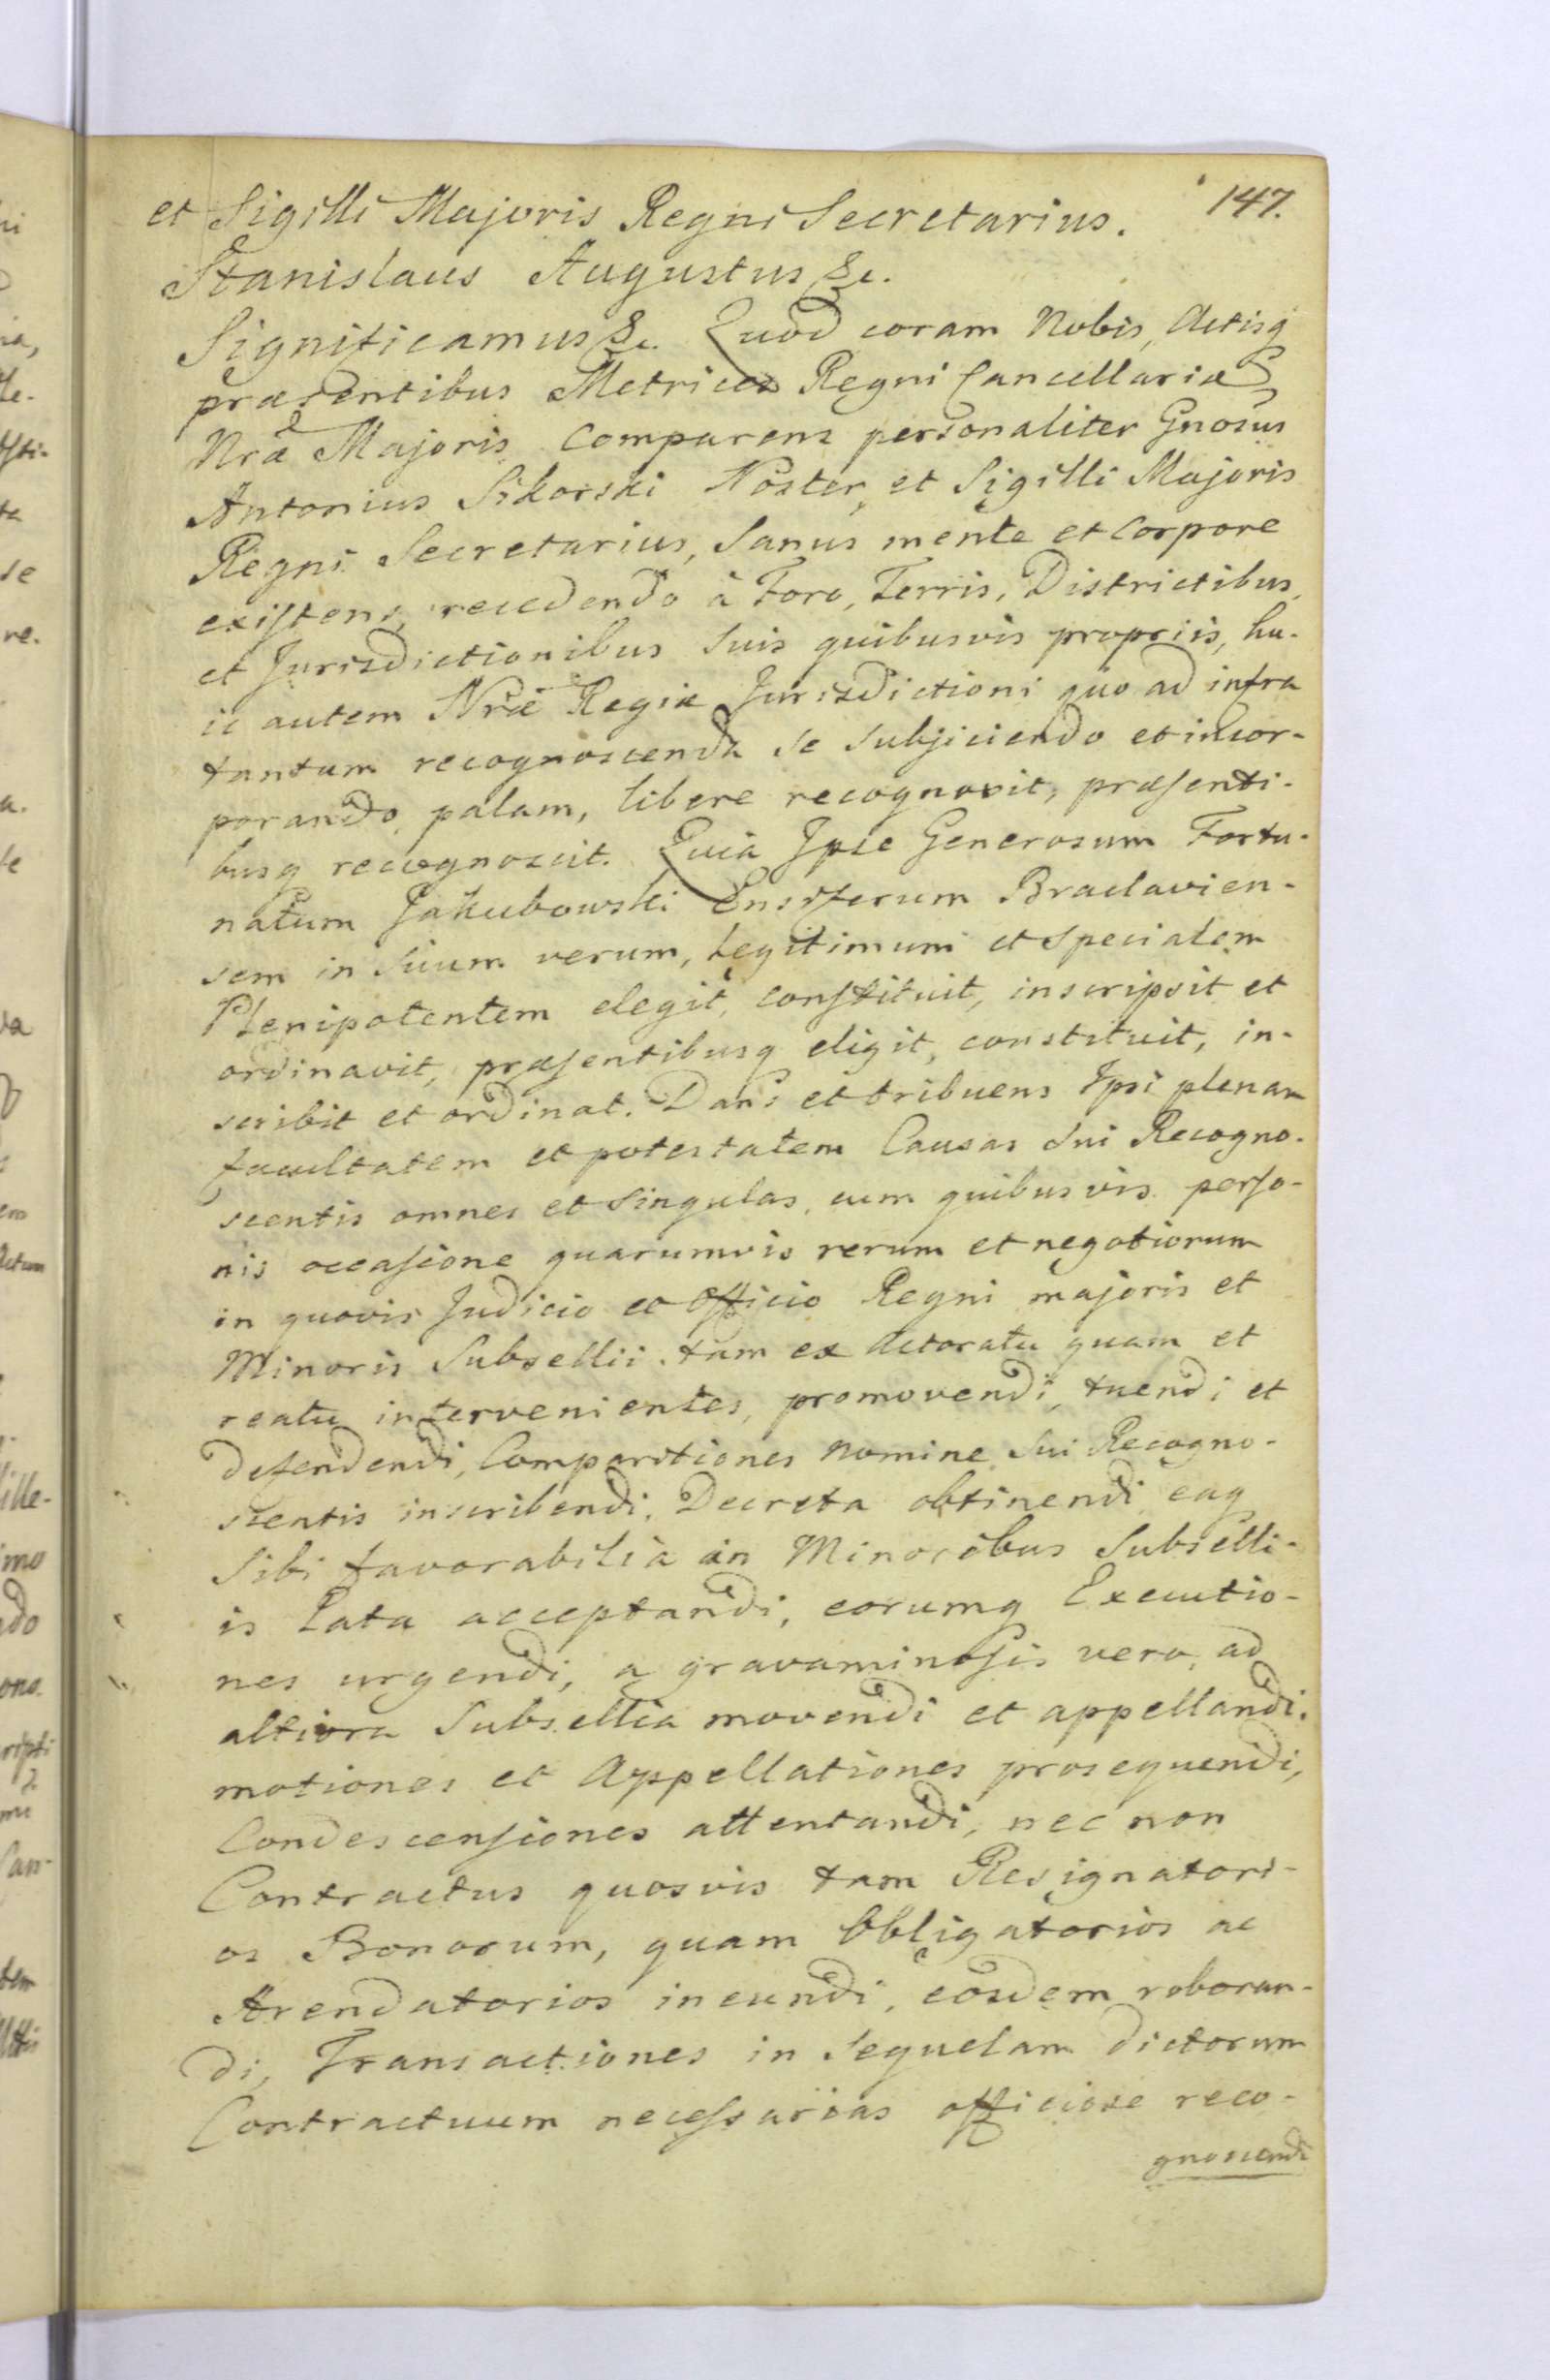 147.
et Sigilli Majoris Regni Secretarius.
Stanislaus Augustus &c.
Significamus &c. Quod coram Nobis, Actisq
præsentibus Metrices Regni Cancellariæ
Nræ Majoris Comparens personaliter Gnosus
Antonius Sikorski Noster, et Sigilli Majoris
Regni Secretarius, Sanus mente et Corpore
existens, recedendo à Foro, Terris, Districtibus,
et Jurisdictionibus Suis quibusvis propriis, hu-
ic autem Nræ Regiæ Jurisdictioni quo ad infra
tantum recognoscenda se Subjiciendo et incor-
porando, palam, libere recognovit, præsenti-
busq recognoscit. Quia Ipse Generosum Fortu-
natum Jakubowski Ensiferum Braclavien-
sem in Suum verum, legitimum et specialem
Plenipotentem elegit, constituit, inscripsit et
ordinavit, præsentibusq eligit, constituit, in-
scribit et ordinat. Dans et tribuens Ipsi plenam
facultatem et potestatem Causas Sui Recogno-
scentis omnes et Singulas, cum quibusvis perso-
nis occasione quarumvis rerum et negotiorum
in quovis Judicio et Officio Regni majoris et
Minoris Subsellii tam ex Actoratu quam et
reatu intervenientes, promovendi, tuendi et
defendendi, Comparitiones nomine Sui Recogno-
scentis inscribendi, Decreta obtinendi eaq
Sibi favorabilia in Minoribus Subselli-
is Lata acceptandi, eorumq Executio-
nes urgendi, a gravaminosis vero, ad
altiora Subsellia movendi et appellandi.
motiones et Appellationes prosequendi,
Condescensiones attentandi, nec non
Contractus quosvis tam Resignatori-
os Bonorum, quam Obligatorios ac
Arendatorios ineundi, eosdem roboran-
di, Transactiones in Sequelam dictorum
Contractuum necessarias officiose reco-
gnoscendi